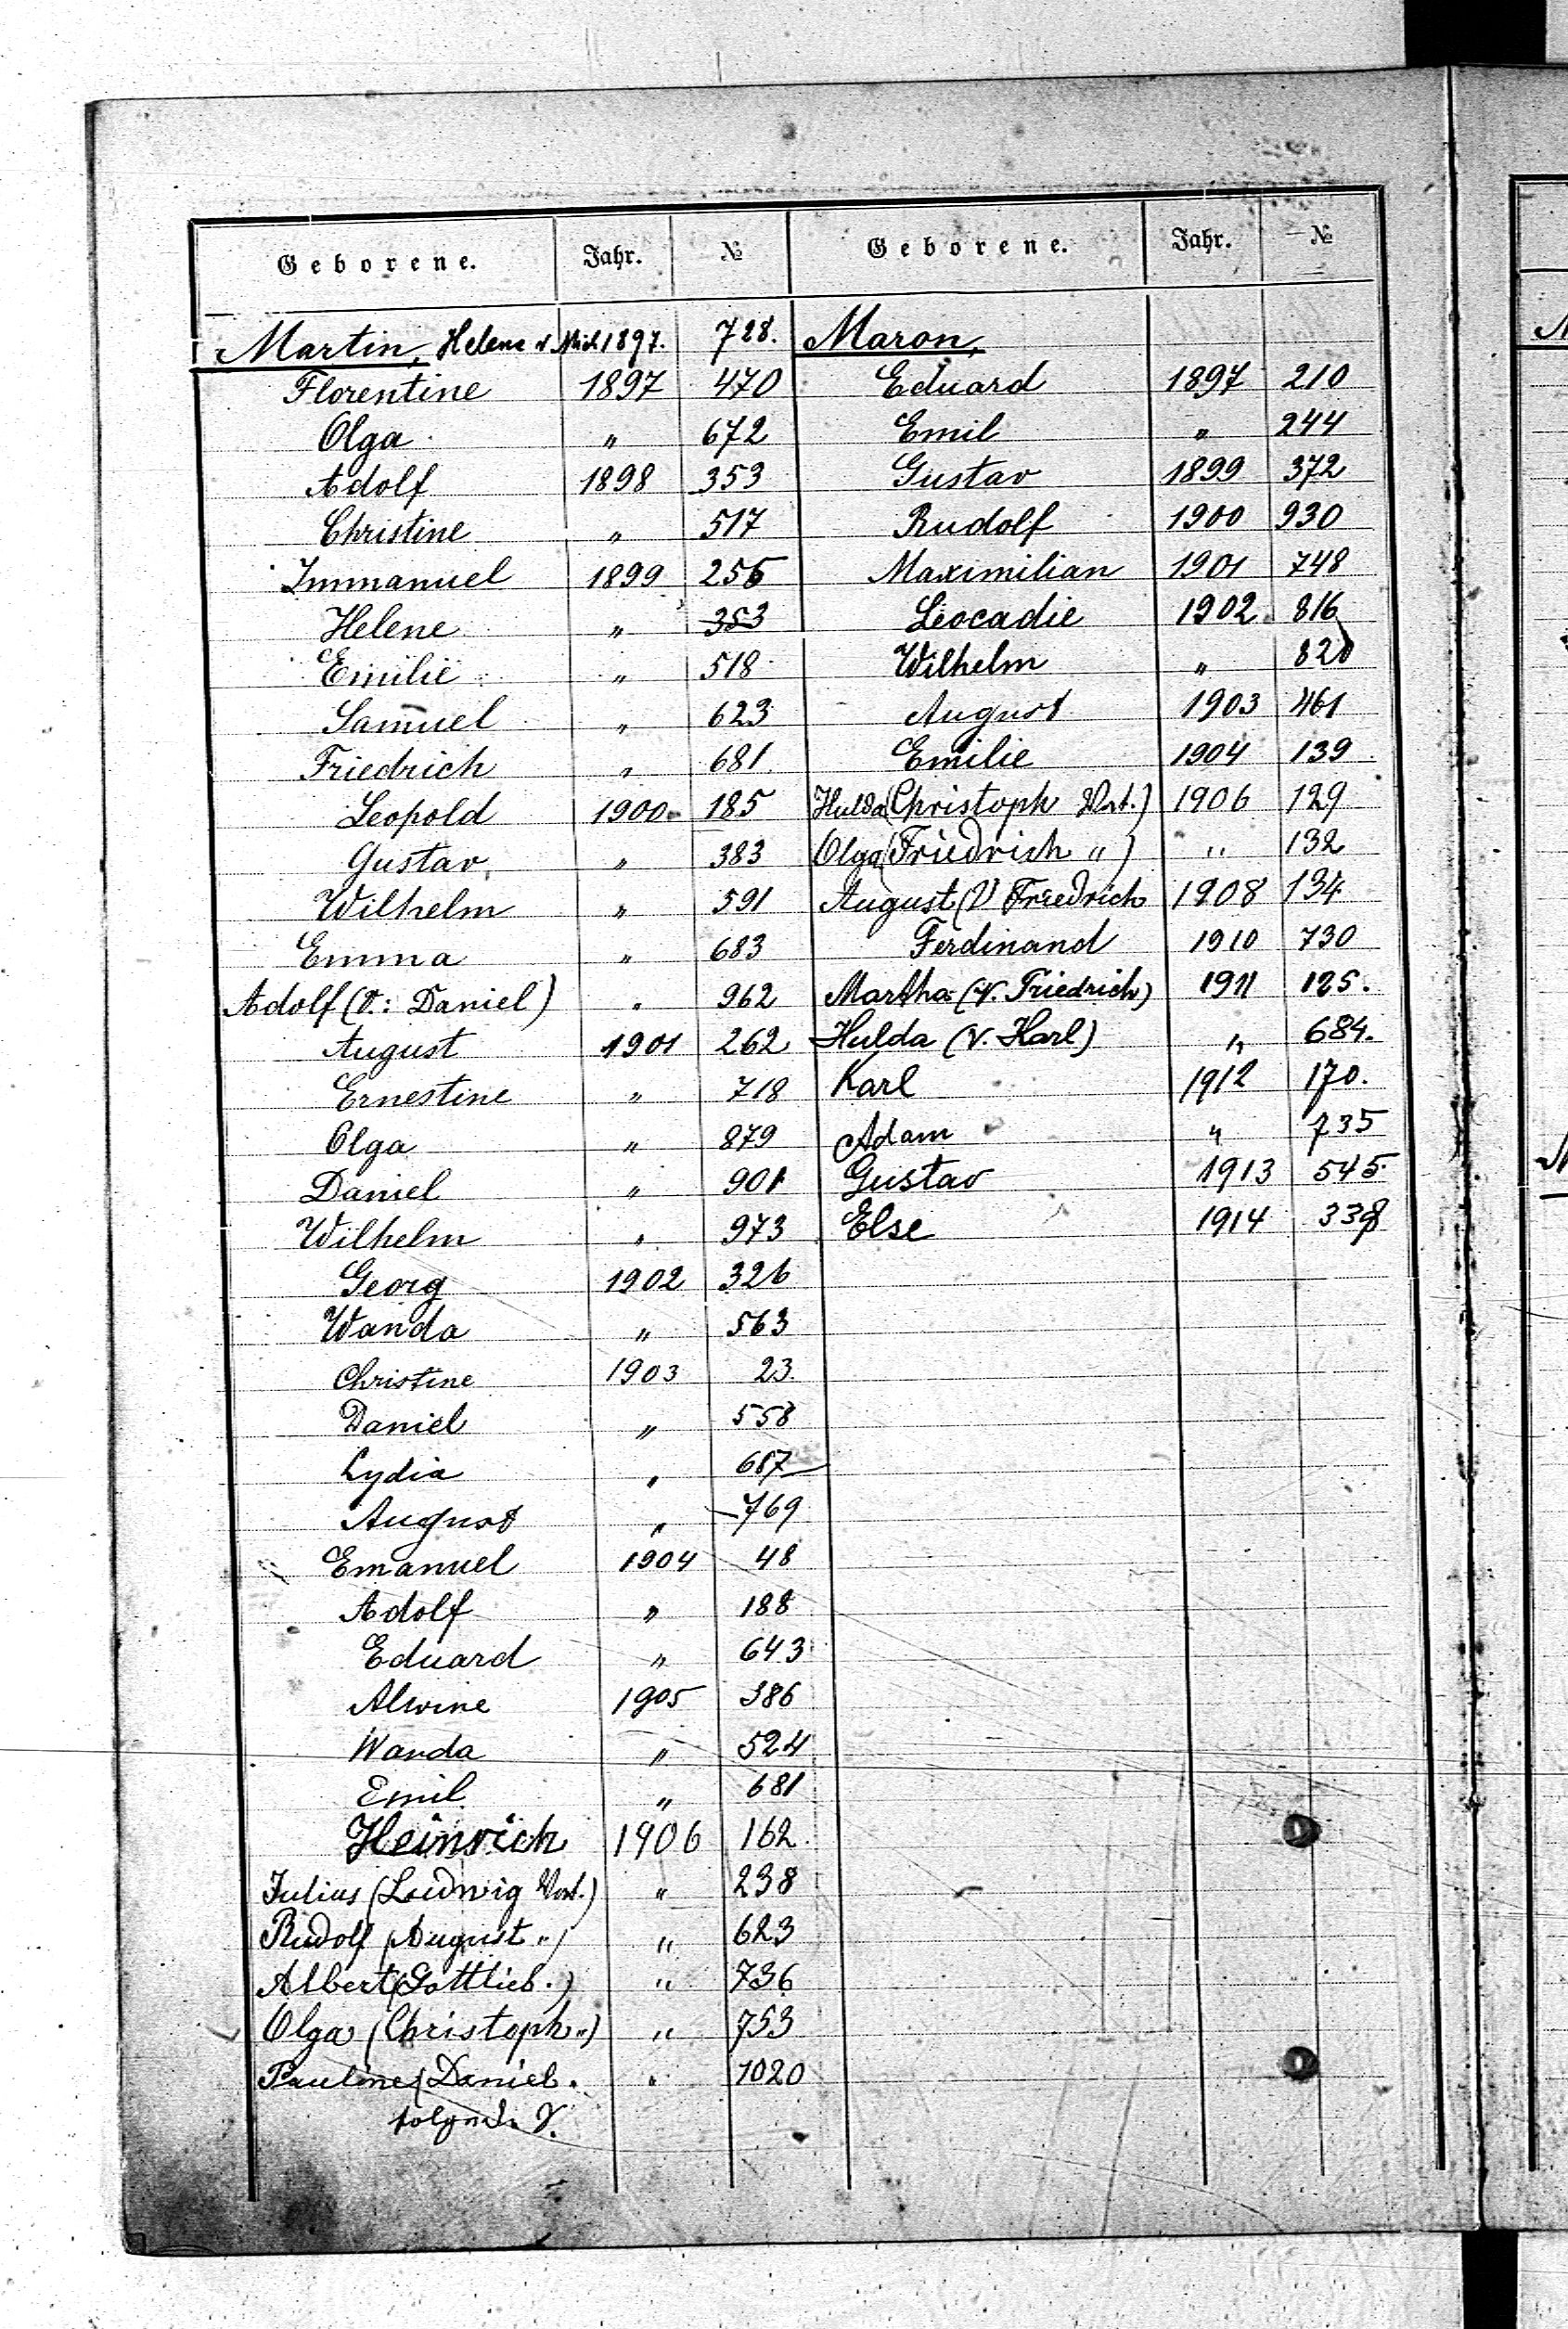 Geborene. Jahr. №
Martin, Helene v. Mich 1897. 728.
Florentine 1897 470
Olga " 672
Adolf 1898 353
Christine " 517
Immanuel 1899 256
Helene " 353
Emilie " 518
Samuel " 623
Friedrich " 681
Leopold 1900 185
Gustav " 383
Wilhelm " 591
Emma " 683
Adolf (V.: Daniel) " 962
August 1901 262
Ernestine " 718
Olga " 879
Daniel " 901
Wilhelm " 973
Georg 1902 326
Wanda " 563
Christine 1903 23
Daniel " 558
Lydia " 687
August " 769
Emanuel 1904 48
Adolf " 188
Eduard " 643
Alwine 1905 386
Wanda " 524
Emil " 681
Heinrich 1906 162
Julius (Ludwig Vat.) " 238
Rudolf (August ") " 623
Albert (Gottlieb ") " 736
Olga (Christoph ") " 753
Pauline (Daniel " " 1020
Geborene. Jahr. №
Maron,
Eduard 1897 210
Emil " 244
Gustav 1899 372
Rudolf 1900 930
Maximilian 1901 748
Leocadie 1902 816
Wilhelm " 820
August 1903 461
Emilie 1904 139
Hulda (Christoph Vat.) 1906 129
Olga (Friedrich ") " 132
August (V Friedrich 1908 134
Ferdinand 1910 730
Martha (V. Friedrich) 1911 125.
Hulda (V. Karl) " 684.
Karl 1912 170.
Adam " 735
Gustav 1913 545
Else 1914 338